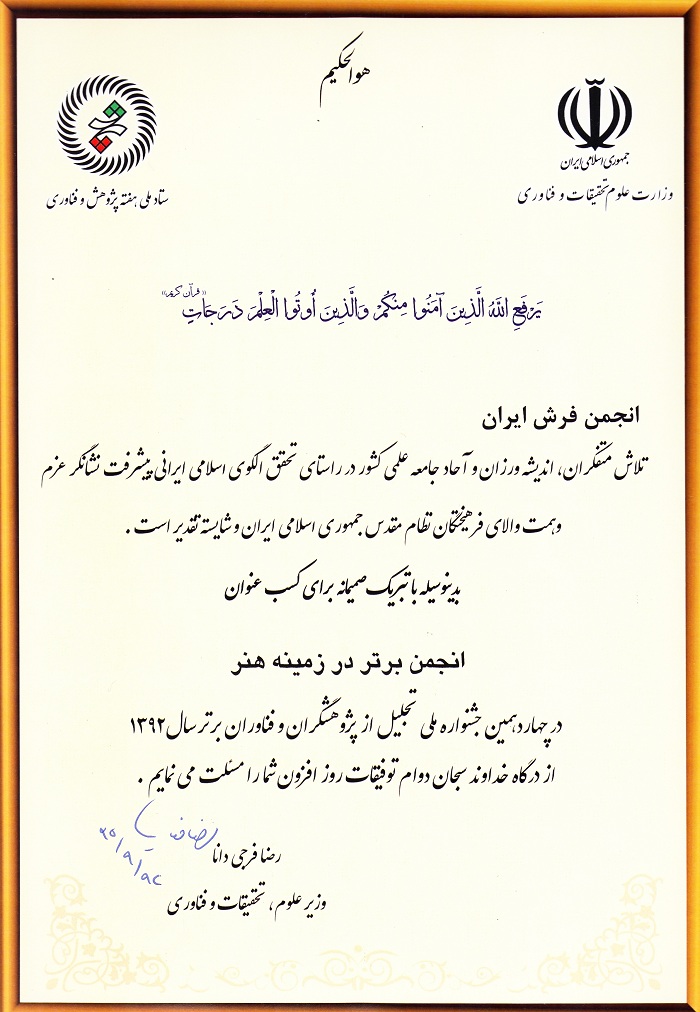 هوالحکیم
جمهوری اسلامی ایران
وزارت علوم تحقیقات و فناوری
ستاد ملی هفته پژوهش و فناوری
يَرْفَعِ اللَّهُ الَّذِينَ آمَنُوا مِنكُمْ وَالَّذِينَ أُوتُوا الْعِلْمَ دَرَجَاتٍ «قرآن کریم»
انجمن فرش ایران
تلاش متفکران، اندیشه ورزان و آحاد جامعه علمی کشور در راستای تحقق الگوی اسلامی ایرانی پیشرفت نشانگر عزم
وهمت والای فرهیختگان نظام مقدس جمهوری اسلامی ایران و شایسته تقدیر است .
بدینوسیله با تبریک صمیمانه برای کسب عنوان
انجمن برتر در زمینه هنر
در چهاردهمین جشنواره ملی تجلیل از پژوهشگران و فناوران برتر سال ۱۳۹۲
از درگاه خداوند سبحان دوام توفیقات روز افزون شما را مسئلت می نمایم .
رضا فرجی دانا
وزیر علوم ، تحقیقات و فناوری